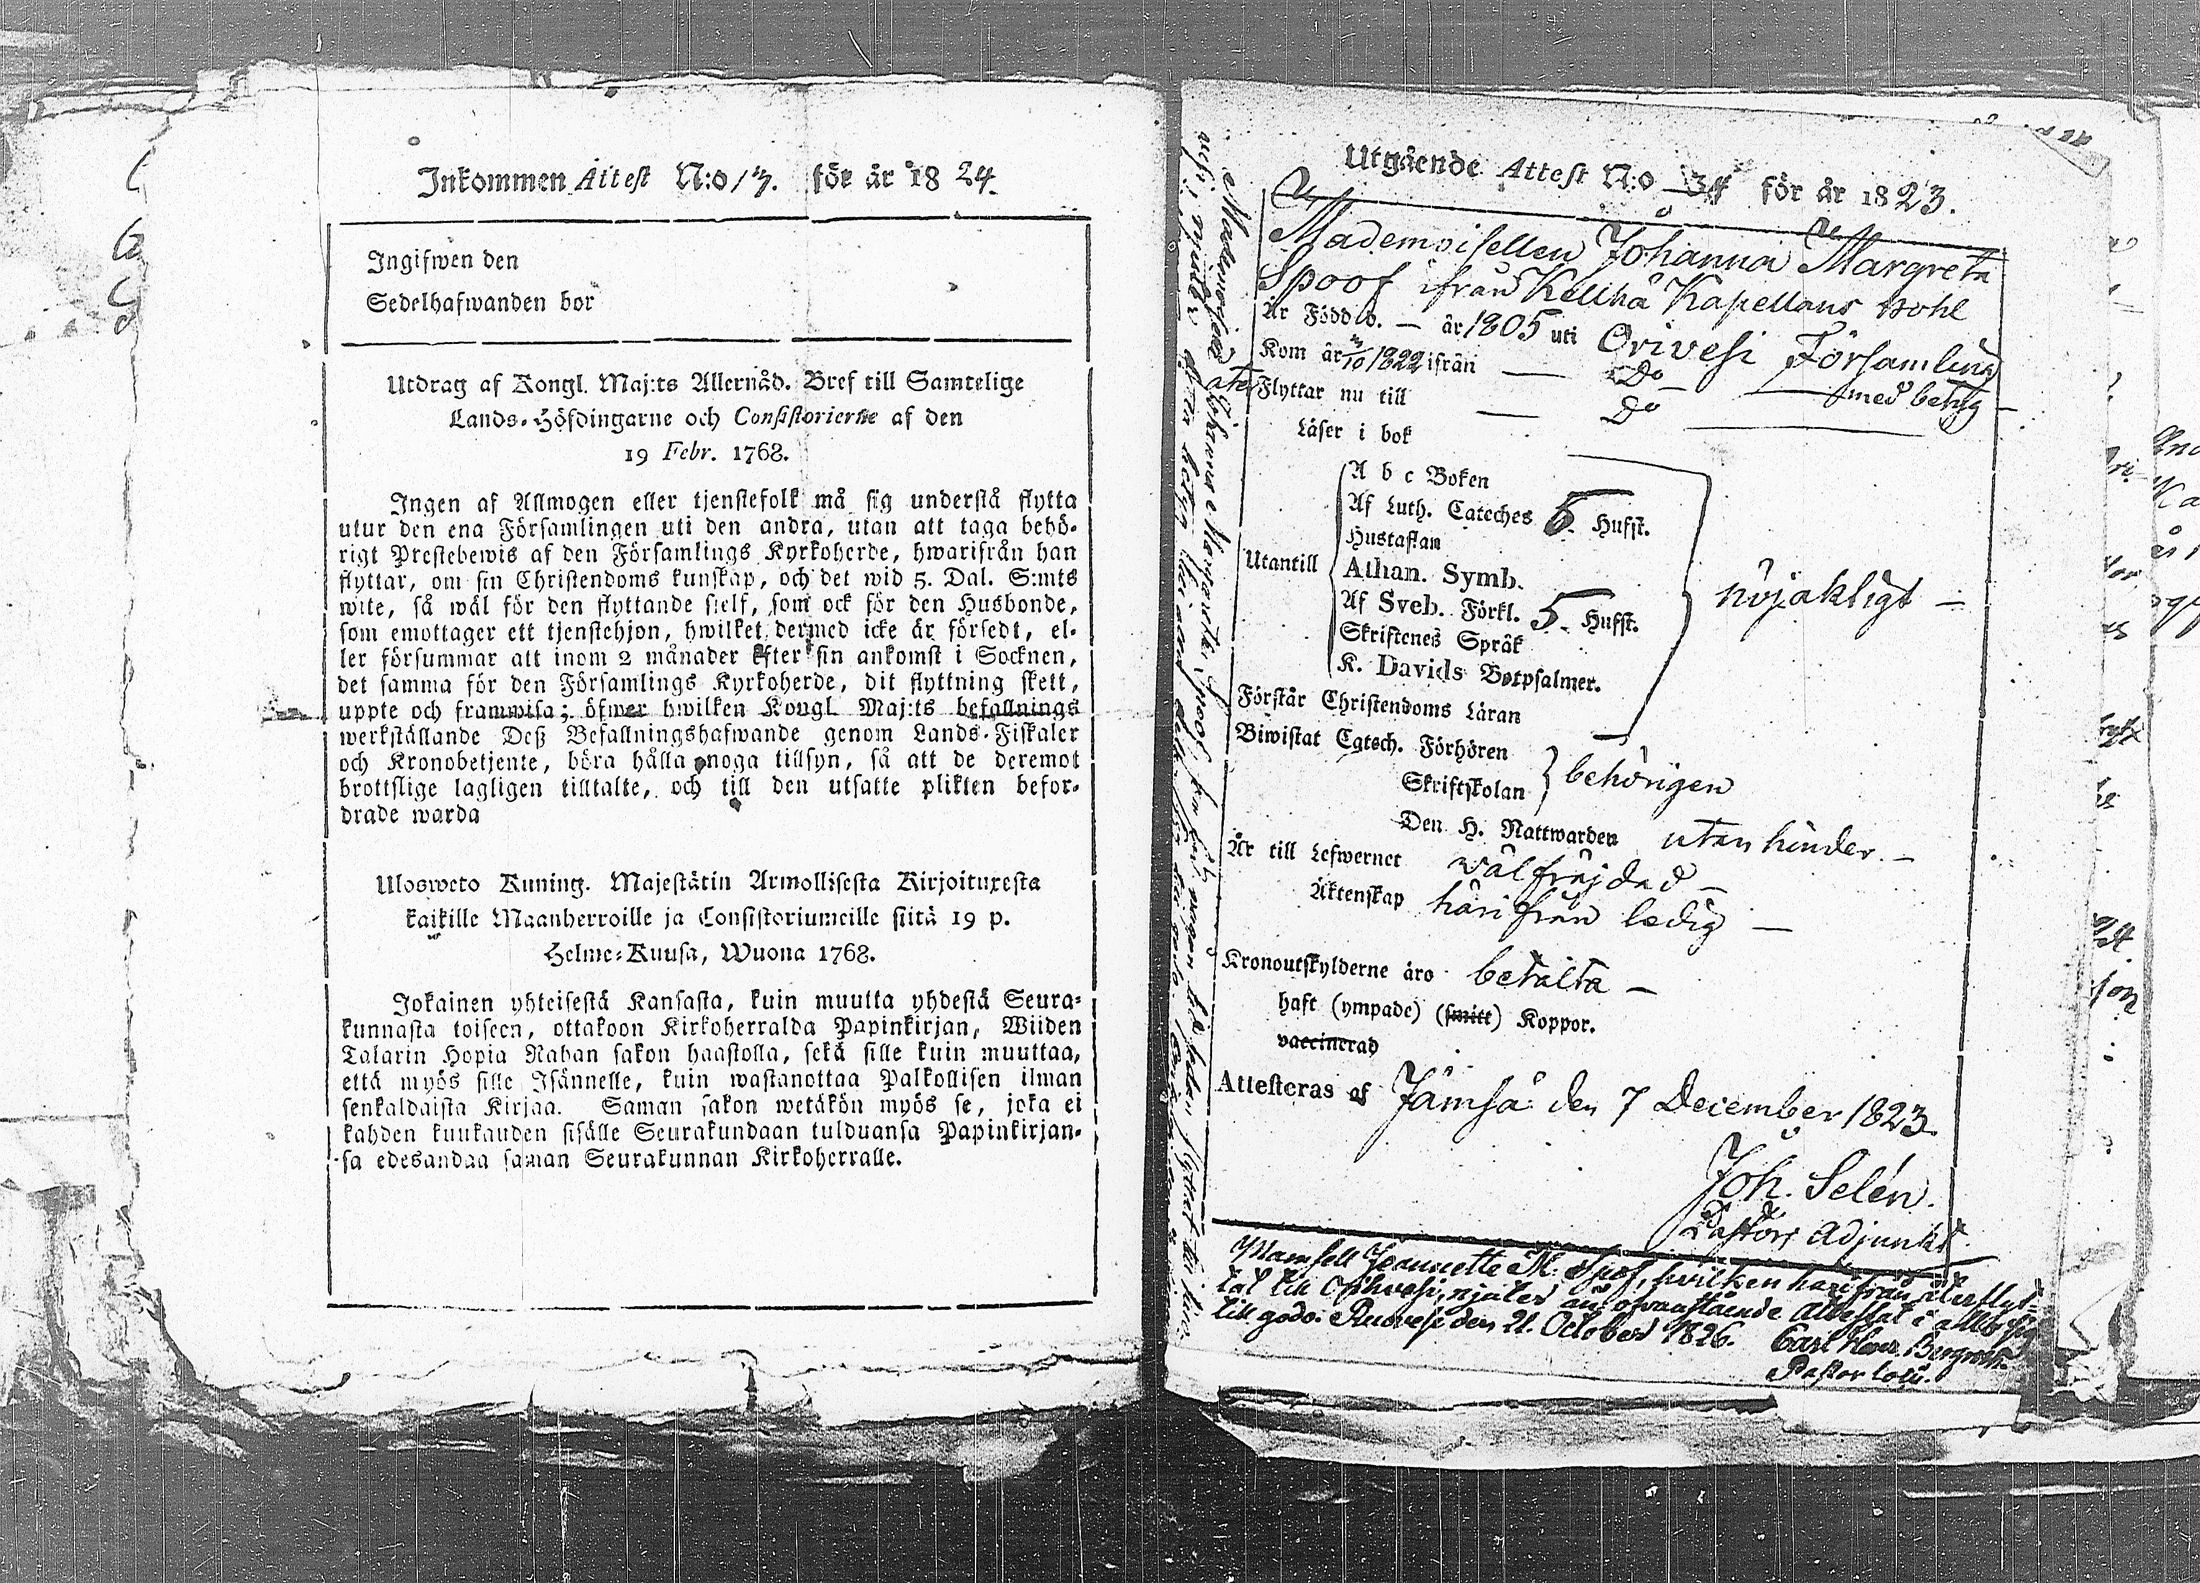 Inkommen Attest N:o 17. för år 1824.
Ingifwen den
Sedelhafwanden bor
Utdrag af Kongl. Maj:ts Allernåd. Bref till Samtelige
Lands-Höfdingarne och Consistorierne af den
19 Febr. 1768.
Ingen af Allmogen eller tjenstefolk må sig understå flytta
utur den ena Församlingen uti den andra, utan att taga behö-
rigt Prestebewis af den Församlings Kyrkoherde, hwarifrån han
flyttar, om sin Christendoms kunskap, och det wid 5. Dal. S:mts
wite, så wäl för den flyttande sielf, som ock för den Husbonde,
som emottager ett tjenstehjon, hwilket dermed icke är försedt, el-
ler försummar att inom 2 månader efter sin ankomst i Socknen,
det samma för den Församlings Kyrkoherde, dit flyttning skett,
uppte och framwisa; öfwer hwilken Kongl Maj:ts befallnings
werkställande Deß Befallningshafwande genom Lands-Fiskaler
och Kronobetjente, böra hålla noga tillsyn, så att de deremot
brottslige lagligen tilltalte, och till den utsatte plikten befor-
drade warda
Ulosweto Kuning. Majestätin Armollisesta Kirjoituxesta
kaikille Maanherroille ja Consistoriumeille siitä 19 p.
Helme-Kuusa, Wuona 1768.
Jokainen yhteisestä Kansasta, kuin muutta yhdestä Seura-
kunnasta toiseen, ottakoon Kirkoherralda Papinkirjan, Wiiden
Talarin Hopia Rahan sakon haastolla, sekä sille kuin muuttaa,
että myös sille Isännelle, kuin wastanottaa Palkollisen ilman
senkaldaista Kirjaa. Saman sakon wetäkön myös se, joka ei
kahden kuukauden sisälle Seurakundaan tulduansa Papinkirjan-
sa edesandaa saman Seurakunnan Kirkoherralle.
Utgående Attest N:o 34 för år 1823.
Mademoisellen Johanna Margreta
Spoof ifrån Kapellans bohl
Är Född d. — år 1805 uti Orivesi Församling
Kom år 1822 ifrån — Do —
åter Flyttar nu till — Do — med betyg —
Läser i bok
Utantill
A b c Boken
Af Luth. Cateches 5. Hufst.
Hustaflan
Athan. Symb.
Af Sveb. Förkl. 5. Hufst.
Skriftenes Språk
K. Davids Botpsalmer.
Förstår Christendoms Läran
nöjaktigt —
Biwistat Catech. Förhören
Skriftskolan
behörigen
Den H. Nattwarden utan hinder. —
Är till Lefwernet wälfräjdad —
Äktenskap härifrån ledig —
Kronoutskylderne äro betalta —
haft (ympade) (smitt) Koppor.
vaccinerad
Attesteras af Jämsä den 7 December 1823.
Joh. Selén.
Pastors Adjunkt.
Mamsell Jeannette M. Spof, hvilken härifrån återflyt-
tat till Orihvesi, njuter av ofvanstående attestat i allo sig
till godo. Ruovesi den 21. October 1826. Carl Henr. Bergroth
Pastor loci.